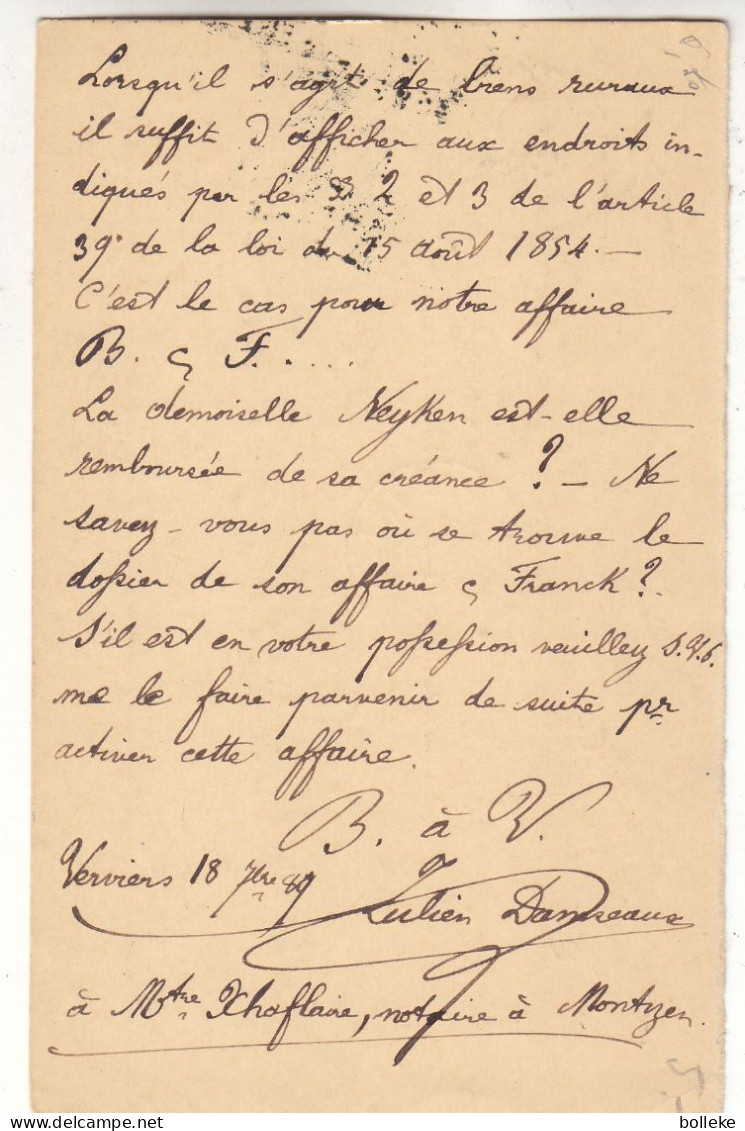 Lorsqu'il s'agit de biens ruraux
il suffit d'afficher aux endroits in-
diqués par les §§ 2 et 3 de l'article
39 de la loi du 15 août 1854.—
C'est le cas pour notre affaire
B. c F. ....
La demoiselle Neyken est-elle
remboursée de sa créance ? — Ne
savez-vous pas où se trouve le
dossier de son affaire c Franck ?
S'il est en votre possession veuillez S.V.P.
me le faire parvenir de suite pr
activer cette affaire.
B. à V.
Verviers 18 7bre 87
Julien Damseaux
à Mtre Xhaflaire, notaire à Montzen.
bolleke